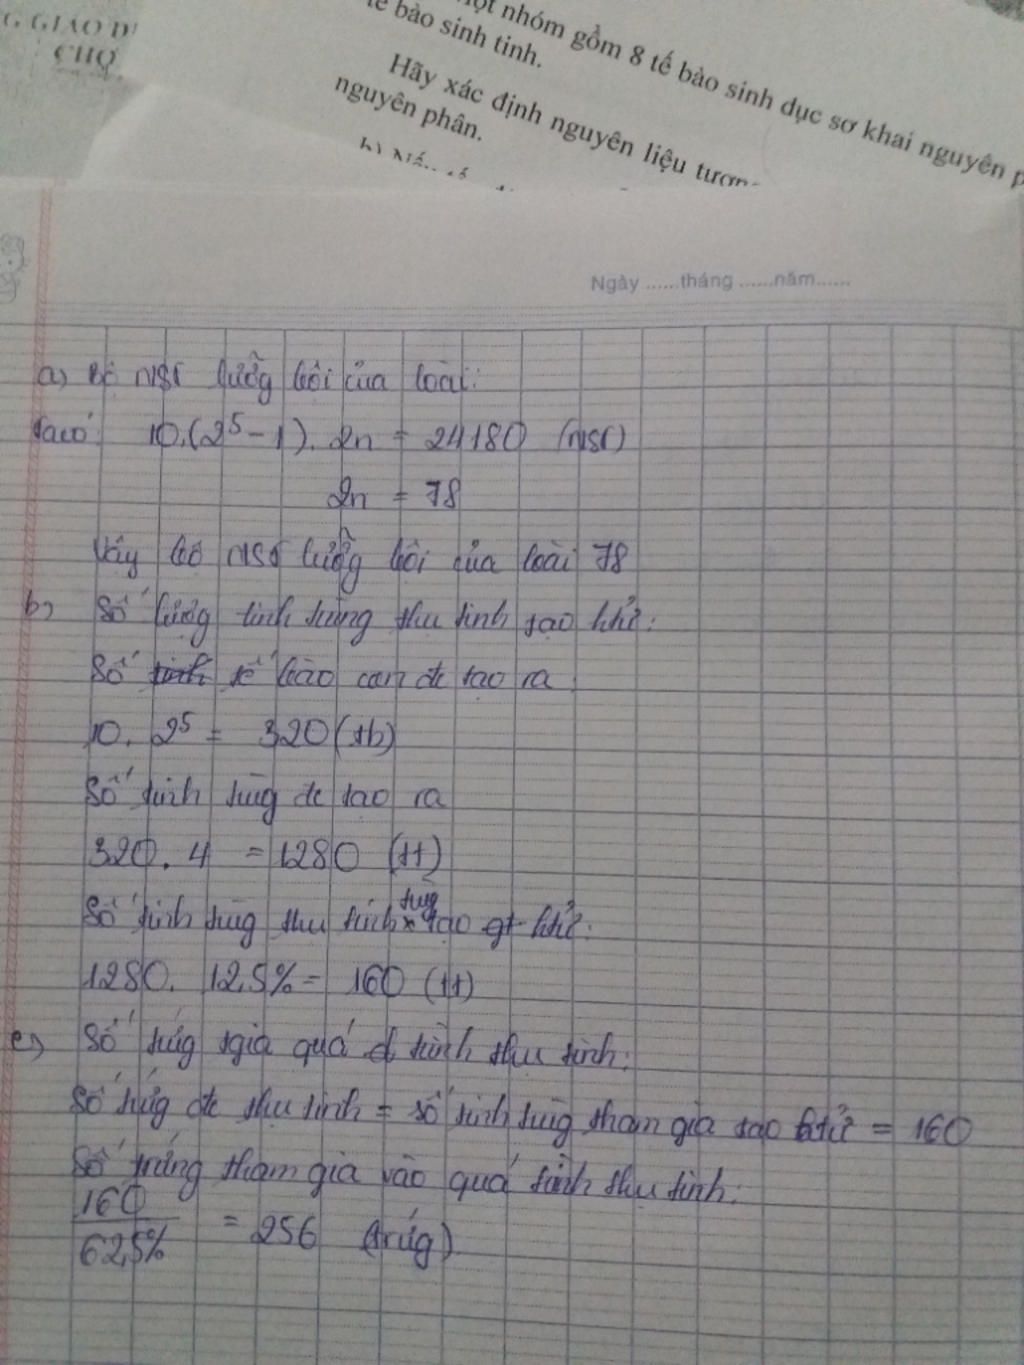 G GIÁO D
CHỌ
một nhóm gồm 8 tế bào sinh dục sơ khai nguyên p
tế bào sinh tinh.
Hãy xác định nguyên liệu tương
nguyên phân.
Ngày ......tháng ......năm......
a) Bộ NST lưỡng bội của loài:
Ta có: 10.(2⁵ - 1). 2n = 24180 (NST)
2n = 78
Vậy bộ NST lưỡng bội của loài 78
b) Số lượng tinh trùng thụ tinh tạo htử:
Số tinh tế bào con đc tạo ra
10. 2⁵ = 320 (tb)
Số tinh trùg đc tạo ra
320. 4 = 1280 (tt)
Số tinh trùg thụ tinh trùg tạo gt htử:
1280. 12,5% = 160 (tt)
c) Số trứg tgia quá trình thụ tinh:
Số trứg đc thụ tinh = số tinh trùg tham gia tạo htử = 160
Số trứng tham gia vào quá trình thụ tinh:
160
62,5% = 256 (trứg)